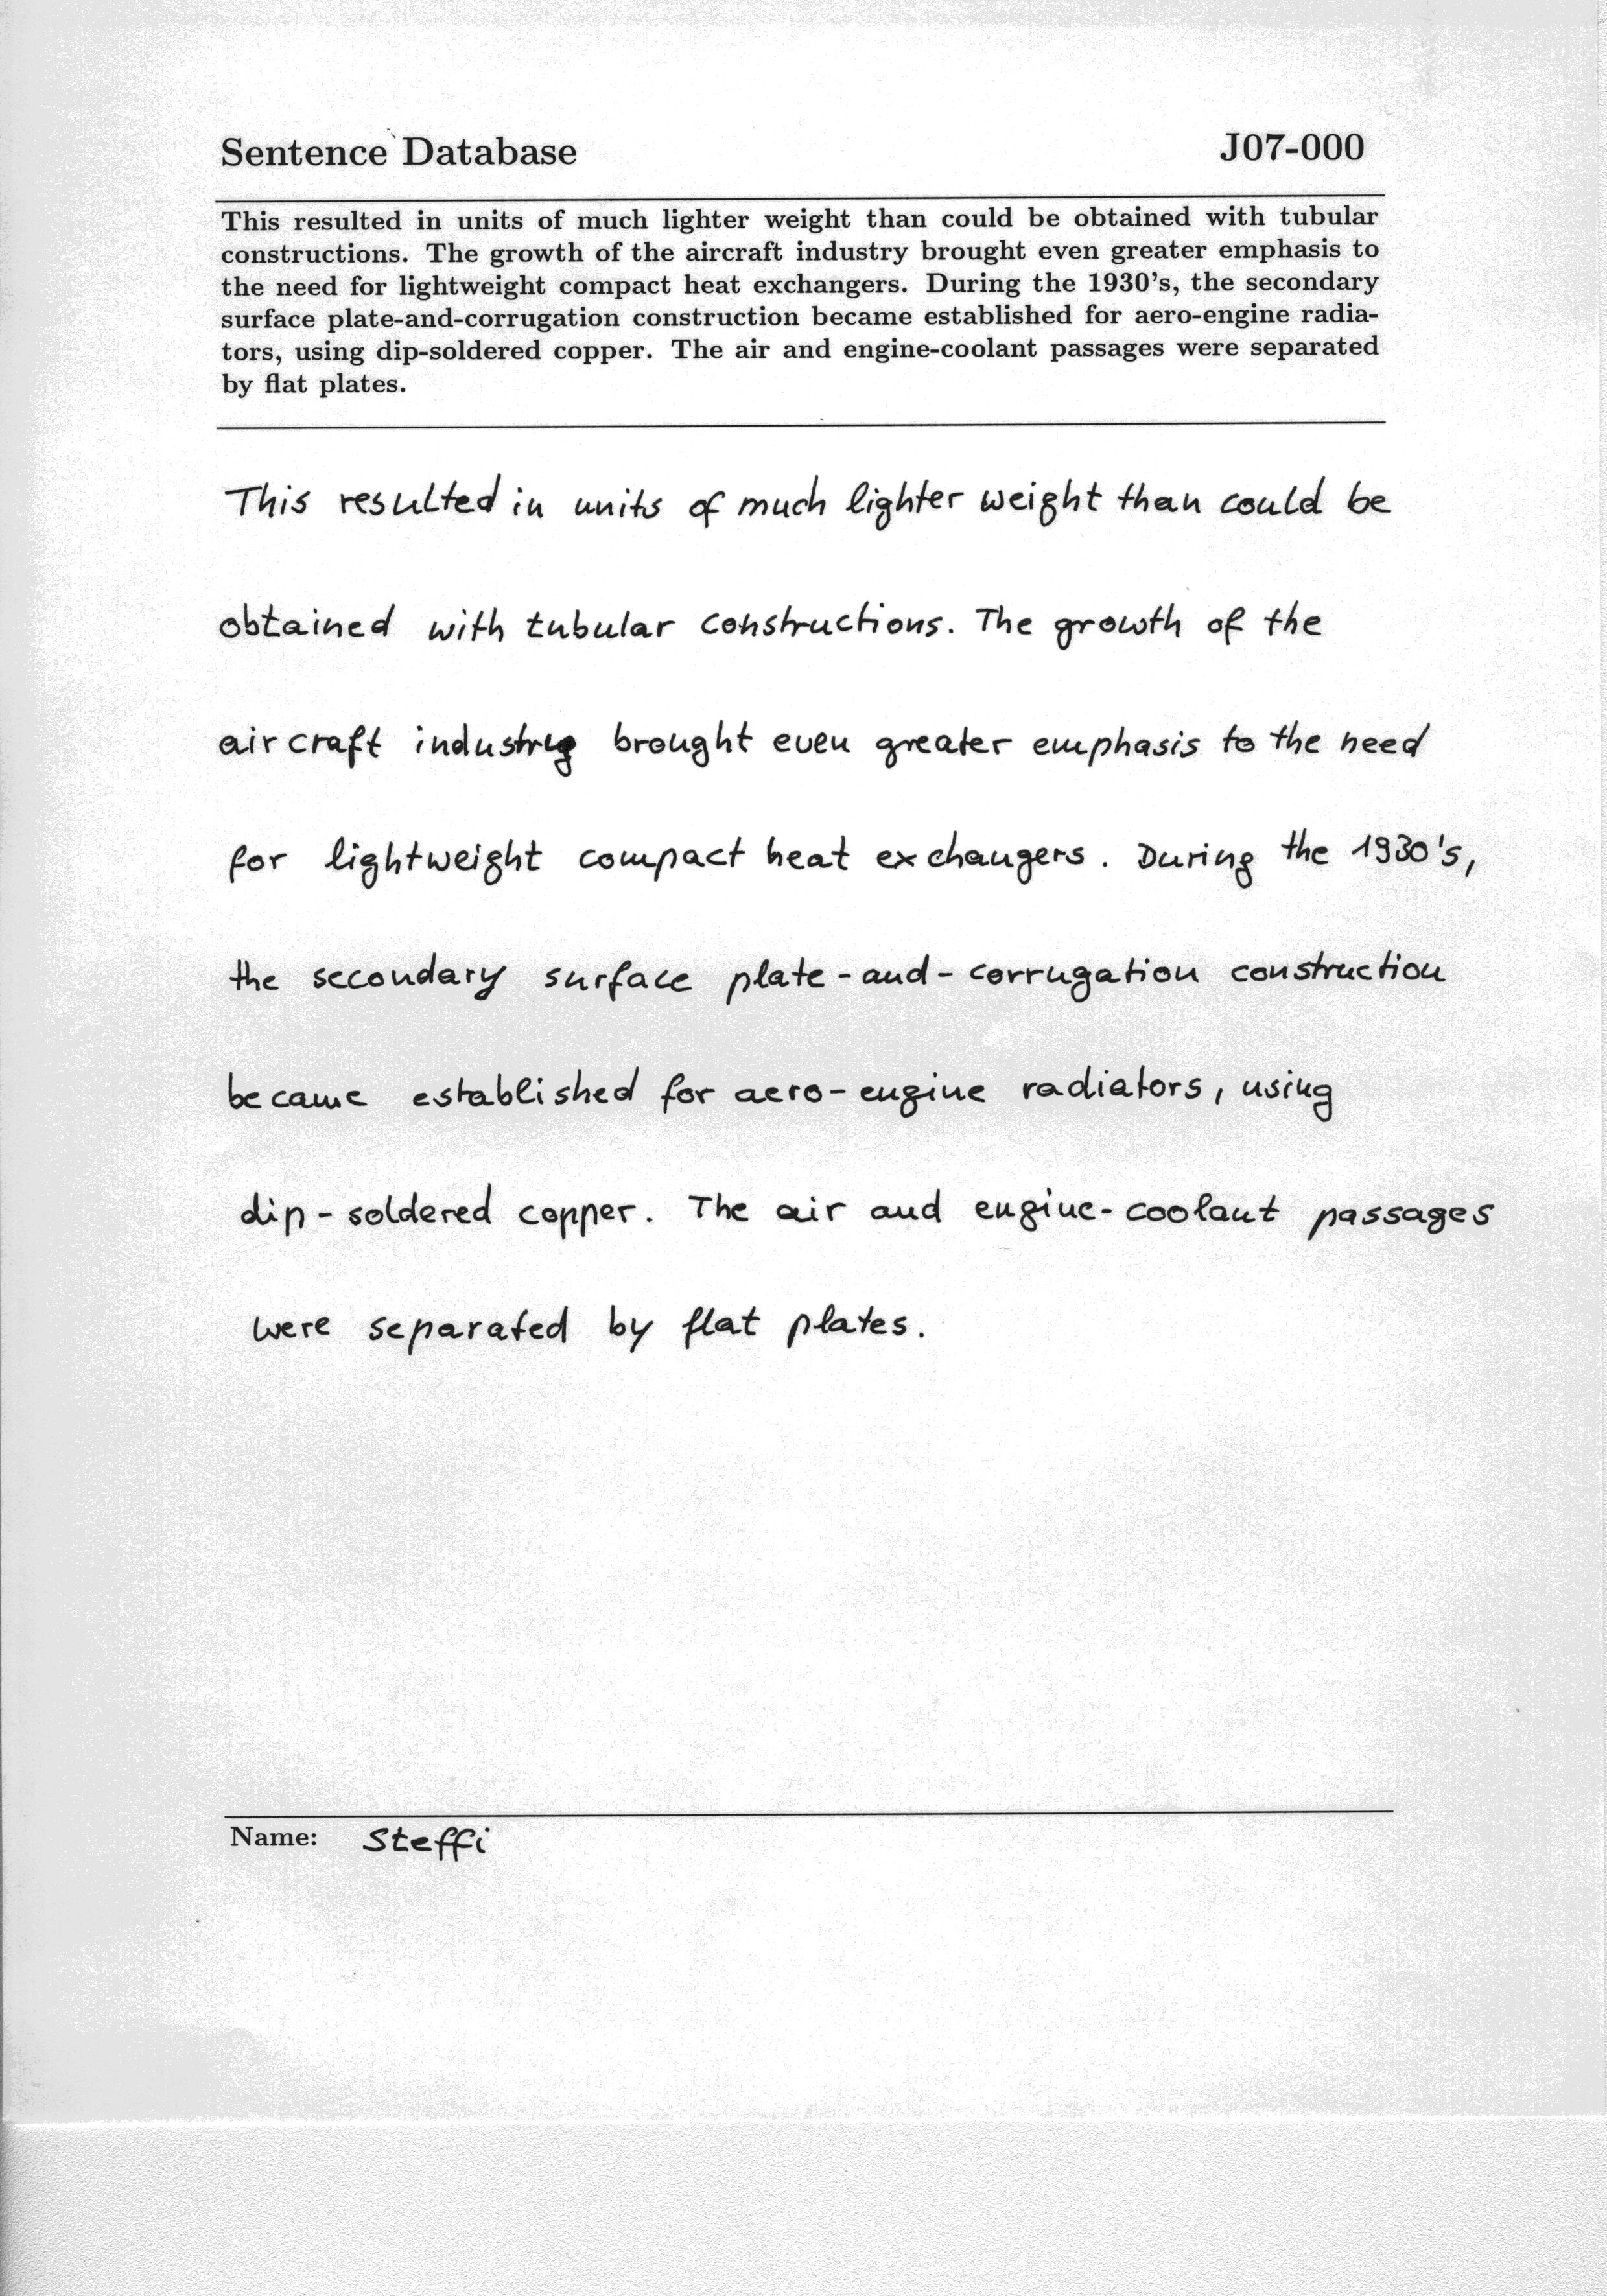 Sentence Database J07-000
This resulted in units of much lighter weight than could be obtained with tubular
constructions. The growth of the aircraft industry brought even greater emphasis to
the need for lightweight compact heat exchangers. During the 1930's, the secondary
surface plate-and-corrugation construction became established for aero-engine radia-
tors, using dip-soldered copper. The air and engine-coolant passages were separated
by flat plates.
This resulted in units of much lighter weight than could be
obtained with tubular constructions. The growth of the
aircraft industry brought even greater emphasis to the need
for lightweight compact heat exchangers. During the 1930's,
the secondary surface plate-and-corrugation construction
became established for aero-engine radiators, using
dip-soldered copper. The air and engine-coolant passages
were separated by flat plates.
Name: Steffi